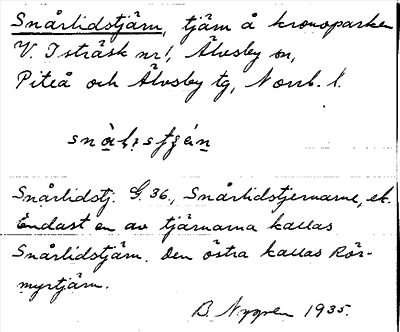 Snårlidstjärn, tjärn å kronoparken
V. Isträsk nr 1, Älvsby sn,
Piteå och Älvsby tg, Norrb. l.
Snårlidstj. G. 36., Snårlidstjernarne, ek.
Endast en av tjärnarna kallas
Snårlidstjärn. Den östra kallas Rör-
myrtjärn.
B. Nygren 1935.